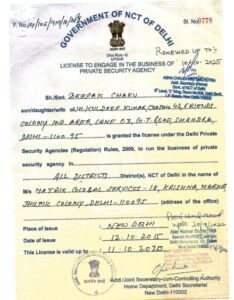 GOVERNMENT OF NCT OF DELHI
Sl No.0779
RENEWED UP TO:-
10/10-2025
LICENSE TO ENGAGE IN THE BUSINESS OF
PRIVATE SECURITY AGENCY
Sh./Smt. DEEPAK
son/daughter/wife of KULDEEP KUMAR, 42, FRIENDS
COLONY IND AREA, LANE 03, G.T. ROAD, SHAHDRA,
DELHI-110095 is granted the license under the Delhi Private
Security Agencies (Regulation) Rules, 2009, to run the business of private
security agency in
ALL DISTRICTS District(s), NCT of Delhi in the name of
M/s MATRIX GLOBAL SERVICES - 18, KRISHNA MARKET
JHILMIL COLONY, DELHI-110095 (address of the office)
Place of Issue : NEW DELHI
Date of Issue : 12-10-2015
This License is valid up to : 11-10-2020
Add./Joint Secretary-cum-Controlling Authority
Home Department, Delhi Secretariat
New Delhi-110002